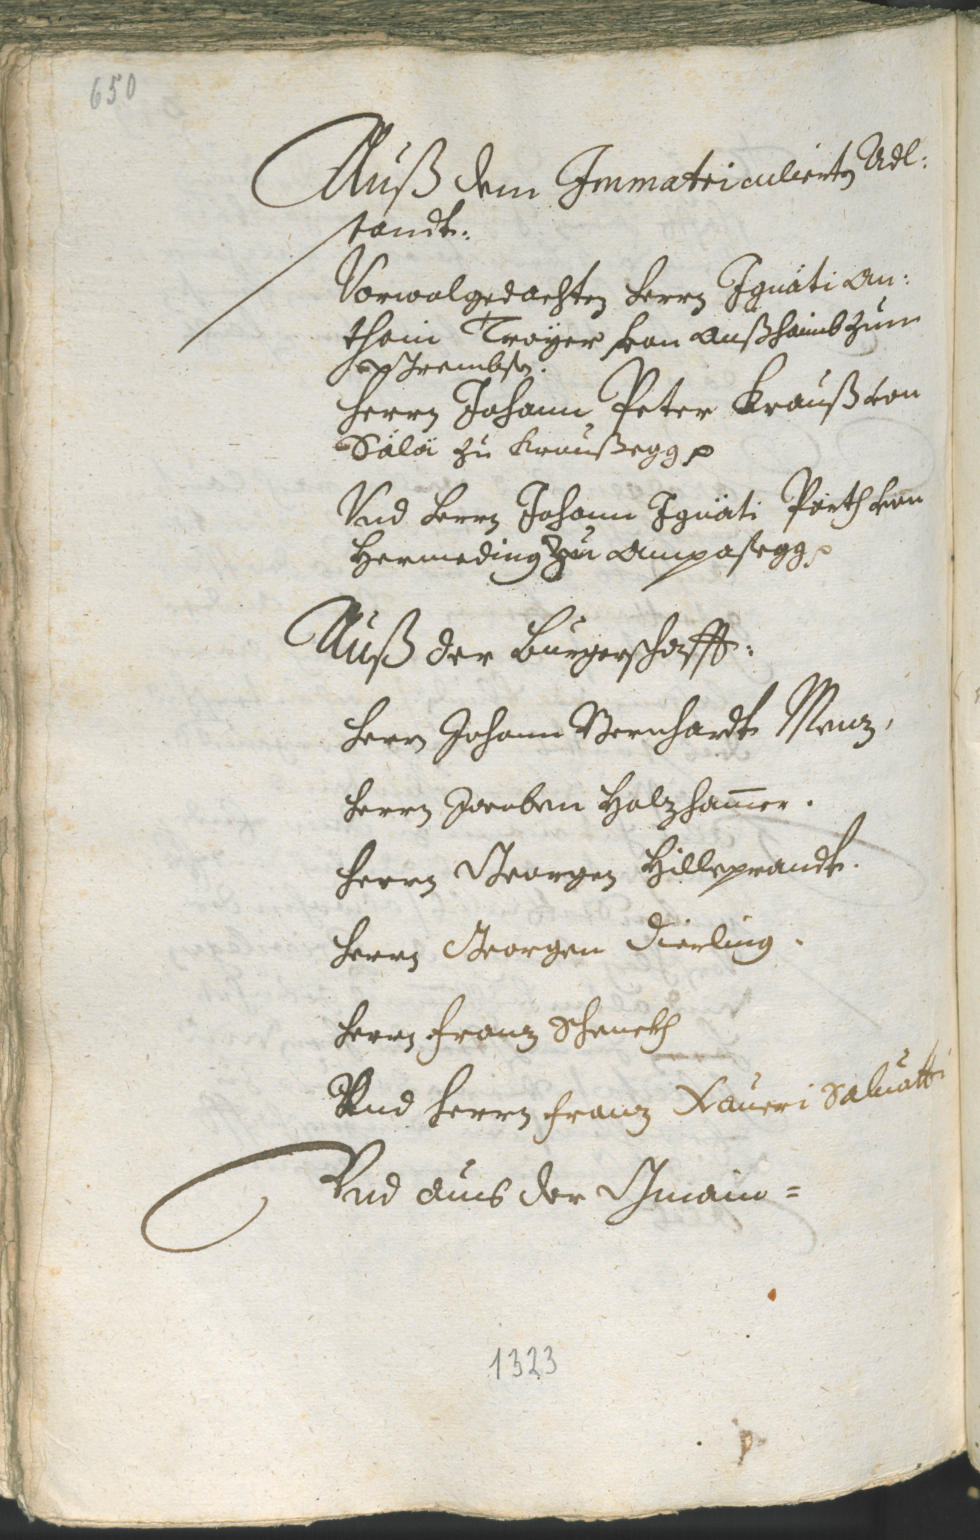 650
Auß dem Immatriculierten Adl:
standt:
Vorwolgedachten Herrn Ignäti An:
thoni Troyer von Außhaimb zum
Strembsn.
Herrn Johann Peter Krauß von
Sälä zu Kraußegg p
Vnd Herrn Johann Ignäti Pärth von
Hermeding zu Ampasegg p
Auß der Burgerschafft:
Herrn Johann Bernhardt Menz,
Herrn Jacoben Holzham̄er.
Herrn Georgen Hilleprandt.
Herrn Georgen Dierling.
Herrn Franz Schenckh
Vnd Herrn Franz Xaueri Saluatti
Vnd auß der Gmain=
1323